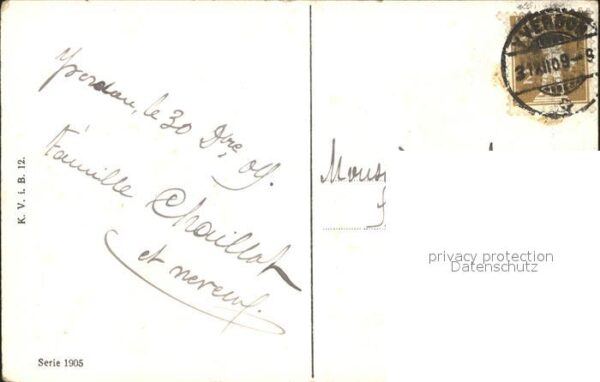 Yverdon, le 30 Dbre 09.
Famille Chaillot
et neveux.
K. V. i. B. 12.
Serie 1905
YVERDON
31.XII.09.-8
privacy protection
Datenschutz